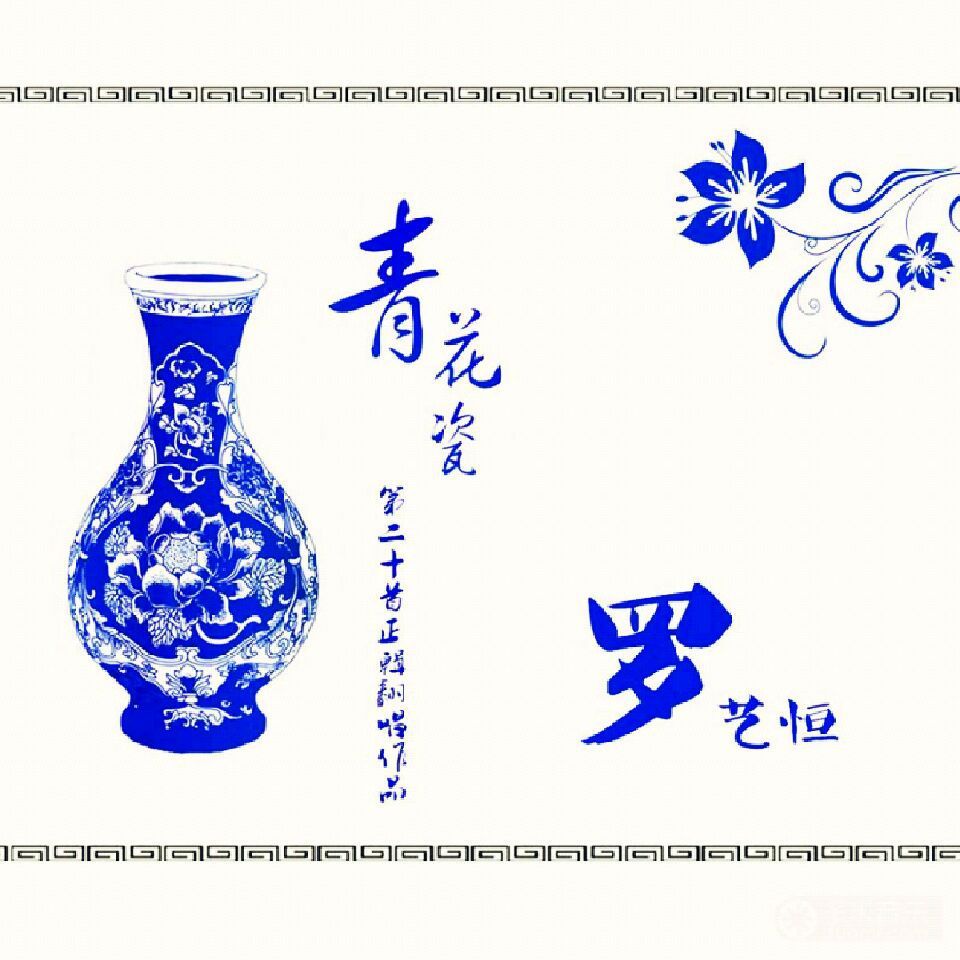 青花瓷
第二十首正辑翻唱作品
罗艺恒